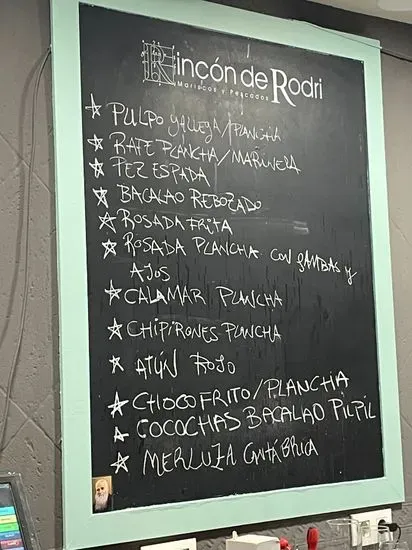 Rincón de Rodri
Mariscos y Pescados
PULPO GALLEGA/PLANCHA
RAPE PLANCHA/MARINERA
PEZ ESPADA
BACALAO REBOZADO
ROSADA FRITA
ROSADA PLANCHA CON GAMBAS Y
AJOS
CALAMAR PLANCHA
CHIPIRONES PLANCHA
ATÚN ROJO
CHOCO FRITO/PLANCHA
COCOCHAS BACALAO PILPIL
MERLUZA CANTÁBRICA